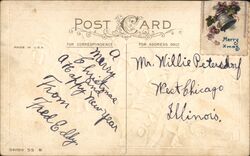 POST CARD
MADE IN U.S.A.
FOR CORRESPONDENCE
FOR ADDRESS ONLY
Merry
Xmas
A
Merry
Christmas
And
A Happy New Year
From
Fred Edy
Mr. Willie Petersdorf
West Chicago
Illinois.